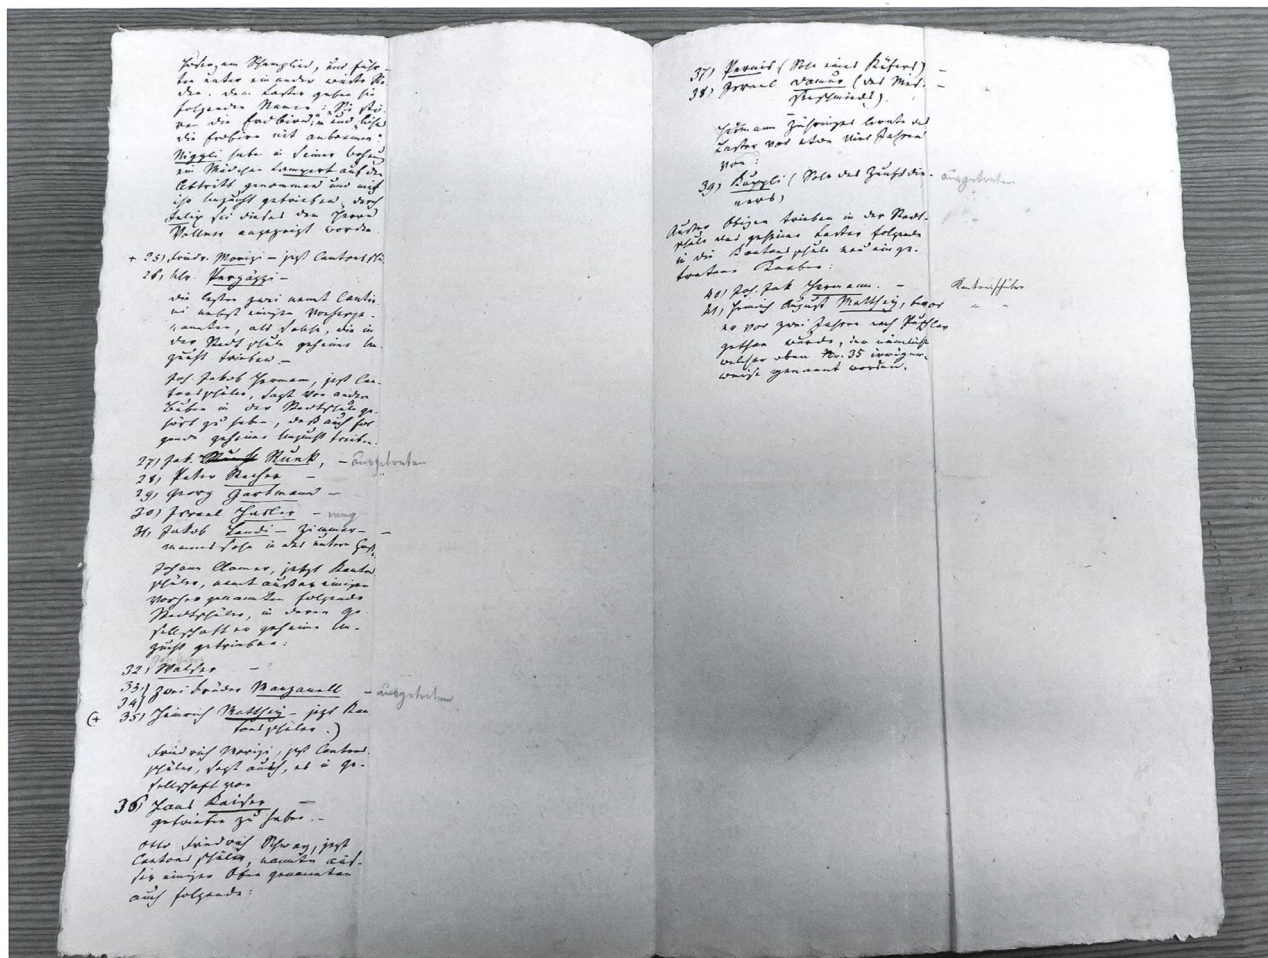 und führ-
ten unter einander wüste Re-
den. dem Laster geben sie
folgenden Namen: "Sie
ren die Erdbirn" und
die Erdbiren mit
Niggli habe in seiner
ein Mädchen Lampert auf den
Abtritt genommen und mit
ihr Unzucht getrieben, doch
sei dieses dem Herrn
angezeigt worden.
+ 25, Friedr. Morizi – jetzt Cantonssch.
26, Chr.
die letzten zwei nennt
ni nebst einigen vorherge-
nannten, als solche, die in
der Stadtschule geheime Un-
zucht trieben –
Joh. Jakob Herman, jetzt Can-
tonsschüler, sagt von andern
Buben in der Stadtschule ge-
hört zu haben, daß auch fol-
gende geheime Unzucht treiben.
27, Jak. Kunk, – ausgetreten
28, Peter Becher –
29, Georg Hartmann –
30, Israel Hasler – weg
31, Jakob Landi – Zimmer-
manns Sohn in der untern
Johann Clomer, jetzt Kantons
schüler, nennt außer einigen
vorher genannten folgende
Stadtschüler, in deren Ge-
sellschaft er geheime Un-
zucht getrieben:
32, Walser –
33,} zwei Brüder Manzanell – ausgetreten
34}
(+ 35, Heinrich Matthey – jetzt Kan
tonsschüler.)
Friedrich Morizi, jetzt Cantons-
schüler, sagt auch, es in Ge-
sellschaft von
36, Hans Kaiser –
getrieben zu haben. –
Otto Friedrich Schwarz, jetzt
Cantonsschüler, nannte aus-
ser einigen Oben genannten
auch folgende:
37, (Sohn eines Küfers) –
38, Israel Domur (des Mes-
serschmieds). –
Hermann Zähringer lernte das
Laster vor etwa vier Jahren
von:
39, Kuppli (Sohn des Zunftdie- ausgetreten
ners)
Ausser Obigen trieben in der Stadt-
schule das geheime Laster folgende
in die Kantonsschule neu einge-
tretene Knaben:
40, Joh. Jak. Hermann. – Kantonsschüler
41, Heinrich August Matthey, bevor " "
er vor zwei Jahren nach
gethan wurde, der nämliche
welcher oben Nr. 35 irriger-
weise genannt worden.